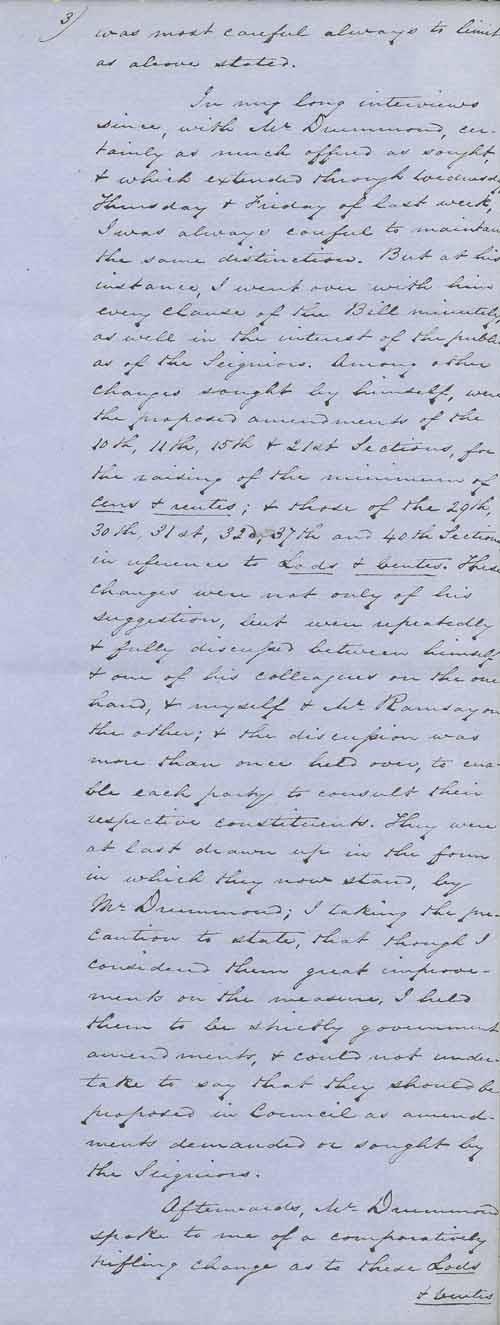 3)
was most careful always to limit
as above stated.
In my long interviews
since, with Mr Drummond, cer-
tainly as much offered as sought
& which extended through Wednesd
Thursday & Friday of last week,
I was always careful to maintain
the same distinction. But at his
instance, I went over with him
every Clause of the Bill minutely,
as well in the interest of the public
as of the Seigniors. Among other
changes sought by himself, were
the proposed amendments of the
10th, 11th, 15th & 21st Sections, for
the raising of the minimum of
cens & rentes; & those of the 29th,
30th, 31st, 32d, 37th and 40th Sections
in reference to Lods & ventes. These
changes were not only of his
suggestion, but were repeatedly
& fully discussed between himself
& one of his colleagues on the one
hand, & myself & Mr Ramsay on
the other; & the discussion was
more than once held over, to ena-
ble each party to consult their
respective constituents. They were
at last drawn up in the form
in which they now stand, by
Mr Drummond; I taking the pre-
caution to state, that though I
considered them great improve-
ments on the measure, I held
them to be strictly government
amendments, & could not under-
take to say that they should be
proposed in Council as amend-
ments demanded or sought by
the Seigniors.
Afterwards, Mr Drummond
spoke to me of a comparatively
trifling change as to these Lods
& ventes